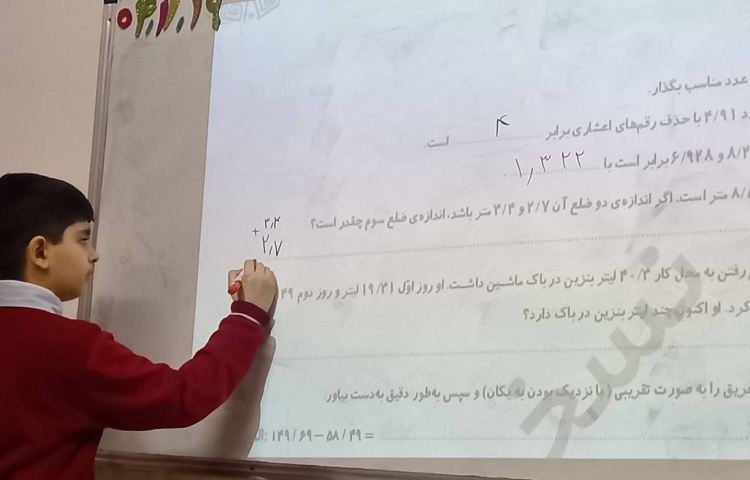 عدد مناسب بگذار.
۴/۹۱ با حذف رقم‌های اعشاری برابر ۴ است.
و ۶/۹۲۸ برابر است با ۱٫۳۲۲ .
متر است. اگر اندازه‌ی دو ضلع آن ۲/۷ و ۳/۴ متر باشد، اندازه‌ی ضلع سوم چقدر است؟
۳٫۴
+
۲٫۷
رفتن به محل کار ۴۰/۳ لیتر بنزین در باک ماشین داشت. او روز اوّل ۱۹/۳۱ لیتر و روز دوم ۴۹
کرد. او اکنون چند لیتر بنزین در باک دارد؟
را به صورت تقریبی (با نزدیک بودن به یکان) و سپس به‌طور دقیق به‌دست بیاور.
۱۴۹/۶۹ − ۵۸/۴۹ =